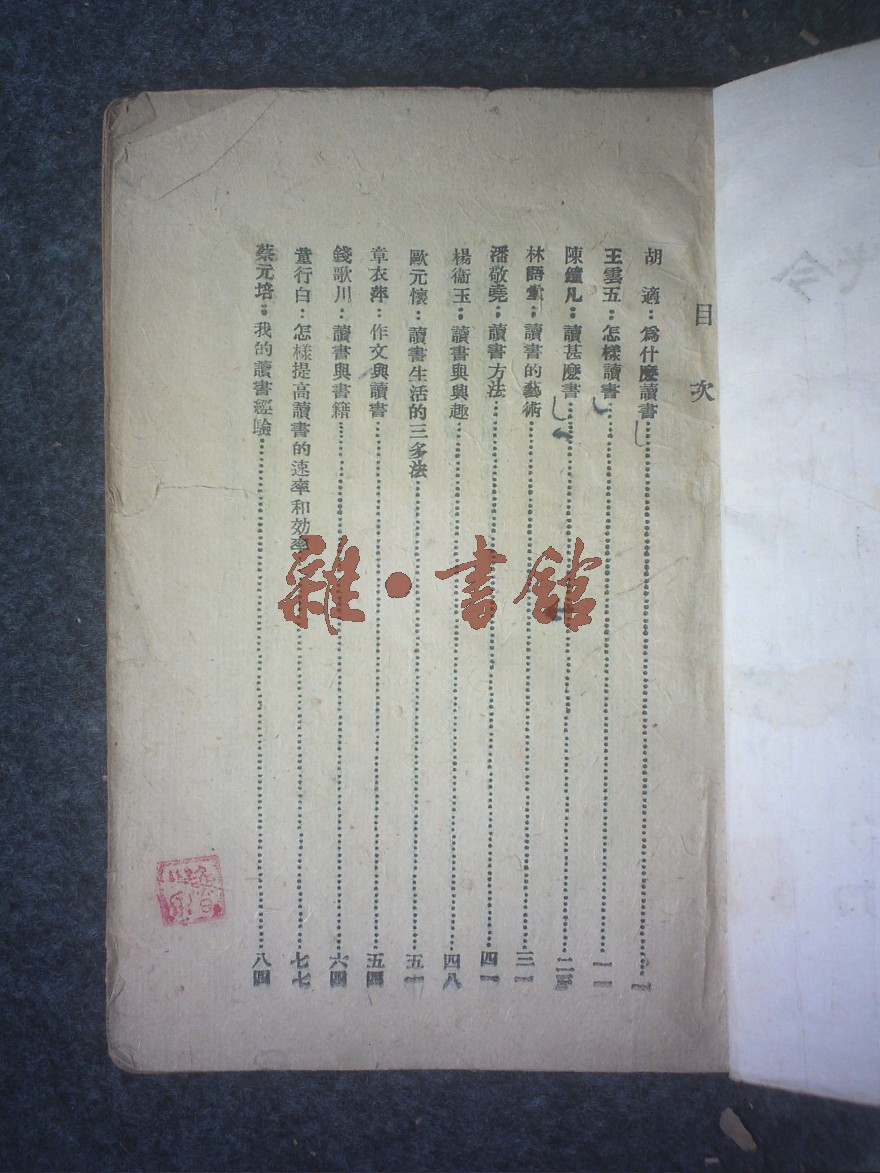 目次
胡適：為什麼讀書……一
王雲五：怎樣讀書……一一
陳鐘凡：讀甚麼書……二
林語堂：讀書的藝術……三一
潘敬堯：讀書方法……四一
楊衞玉：讀書與興趣……四八
歐元懷：讀書生活的三多法……五一
章衣萍：作文與讀書……五四
錢歌川：讀書與書籍……六四
童行白：怎樣提高讀書的速率和効率……七七
蔡元培：我的讀書經驗……八四
雜·書館